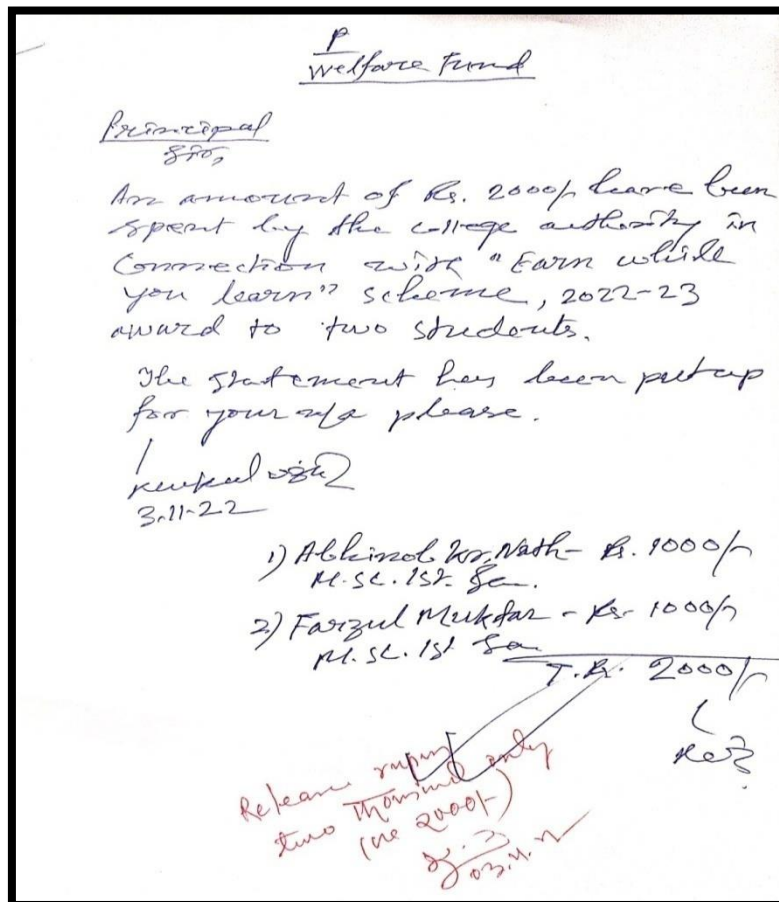 P
Welfare Fund
Principal
Sir,
An amount of Rs. 2000/- have been
spent by the college authority in
Connection with "Earn while
you learn" scheme, 2022-23
award to two students.
The statement has been put up
for your n/a please.
3.11.22
1) Abhinob Kr. Nath - Rs. 1000/-
M.Sc. 1st Sem.
2) Farzul Mukdar - Rs. 1000/-
M.Sc. 1st Sem
T. Rs. 2000/-
Release rupees
two thousand only
2000/-)
03.11.22